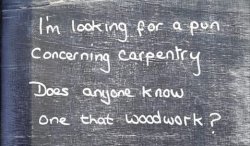 I'm looking for a pun
Concerning carpentry
Does anyone know
one that woodwork?